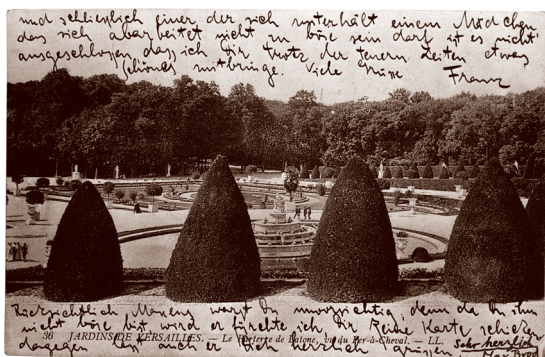 und schließlich einer der sich unterhält einem Mädchen
das sich abarbeitet nicht zu böse sein darf ist es nicht
ausgeschlossen dass ich Dir trotz der teuern Zeiten etwas
schönes mitbringe. Viele Grüße
Franz
Rücksichtlich warst Du unvorsichtig, denn da Du ihm
nicht böse bist wird er fürchte ich Dir Reine Karte schicken
36 JARDINS DE VERSAILLES. — Le Parterre de Latone, vu du Fer-à-Cheval. — LL.
dagegen liegt auch er Dich herzlich grüssen
Sehr herzlich
Max Brod